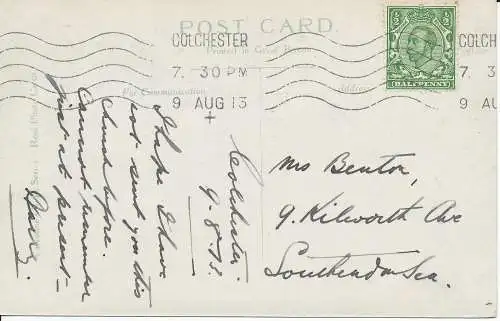 POST CARD.
Printed in Great Britain
COLCHESTER
7. 30 PM
9 AUG 13
COLCHESTER
7. 3
9 AU
HALFPENNY
For Communication
Address
Colchester.
9-8-13.
I hope I have
not sent you this
church before.
Cannot remember
just at present -
Mrs Benton,
9. Kilworth Ave
Southend on Sea.
Series
Real Photo